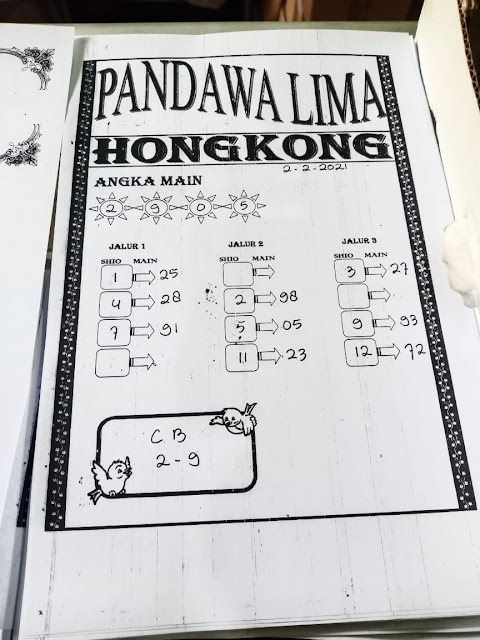 PANDAWA LIMA
HONGKONG
2-2-2021
ANGKA MAIN
2 9 0 5
JALUR 1
SHIO MAIN
1 25
4 28
7 91
JALUR 2
SHIO MAIN
2 98
5 05
11 23
JALUR 3
SHIO MAIN
3 27
9 93
12 72
CB
2-9